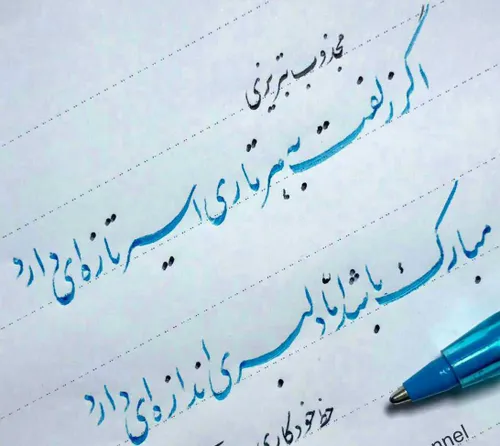 مجذوب تبریزی
اگر زلفت به هر تاری اسیر تازه‌ای دارد
مبارک باشد امّا دلبری اندازه‌ای دارد
خط خودکاری
nnel